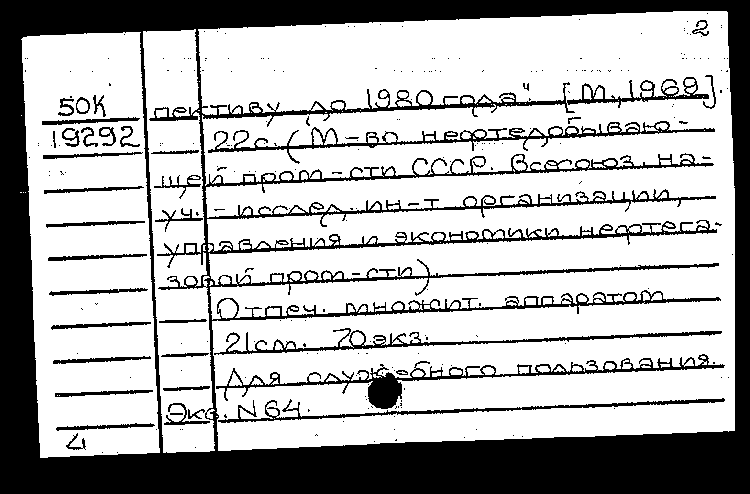 2
50К пективу до 1980 года" [М., 1969].
19292 22с. (М-во нефтедобываю-
щей пром-сти СССР. Всесоюз. на-
уч.-исслед. ин-т организации,
управления и экономики нефтега-
зовой пром-сти).
Отпеч. множит. аппаратом
21см. 70 экз.
Для служебного пользования.
Экз. N 64.
4